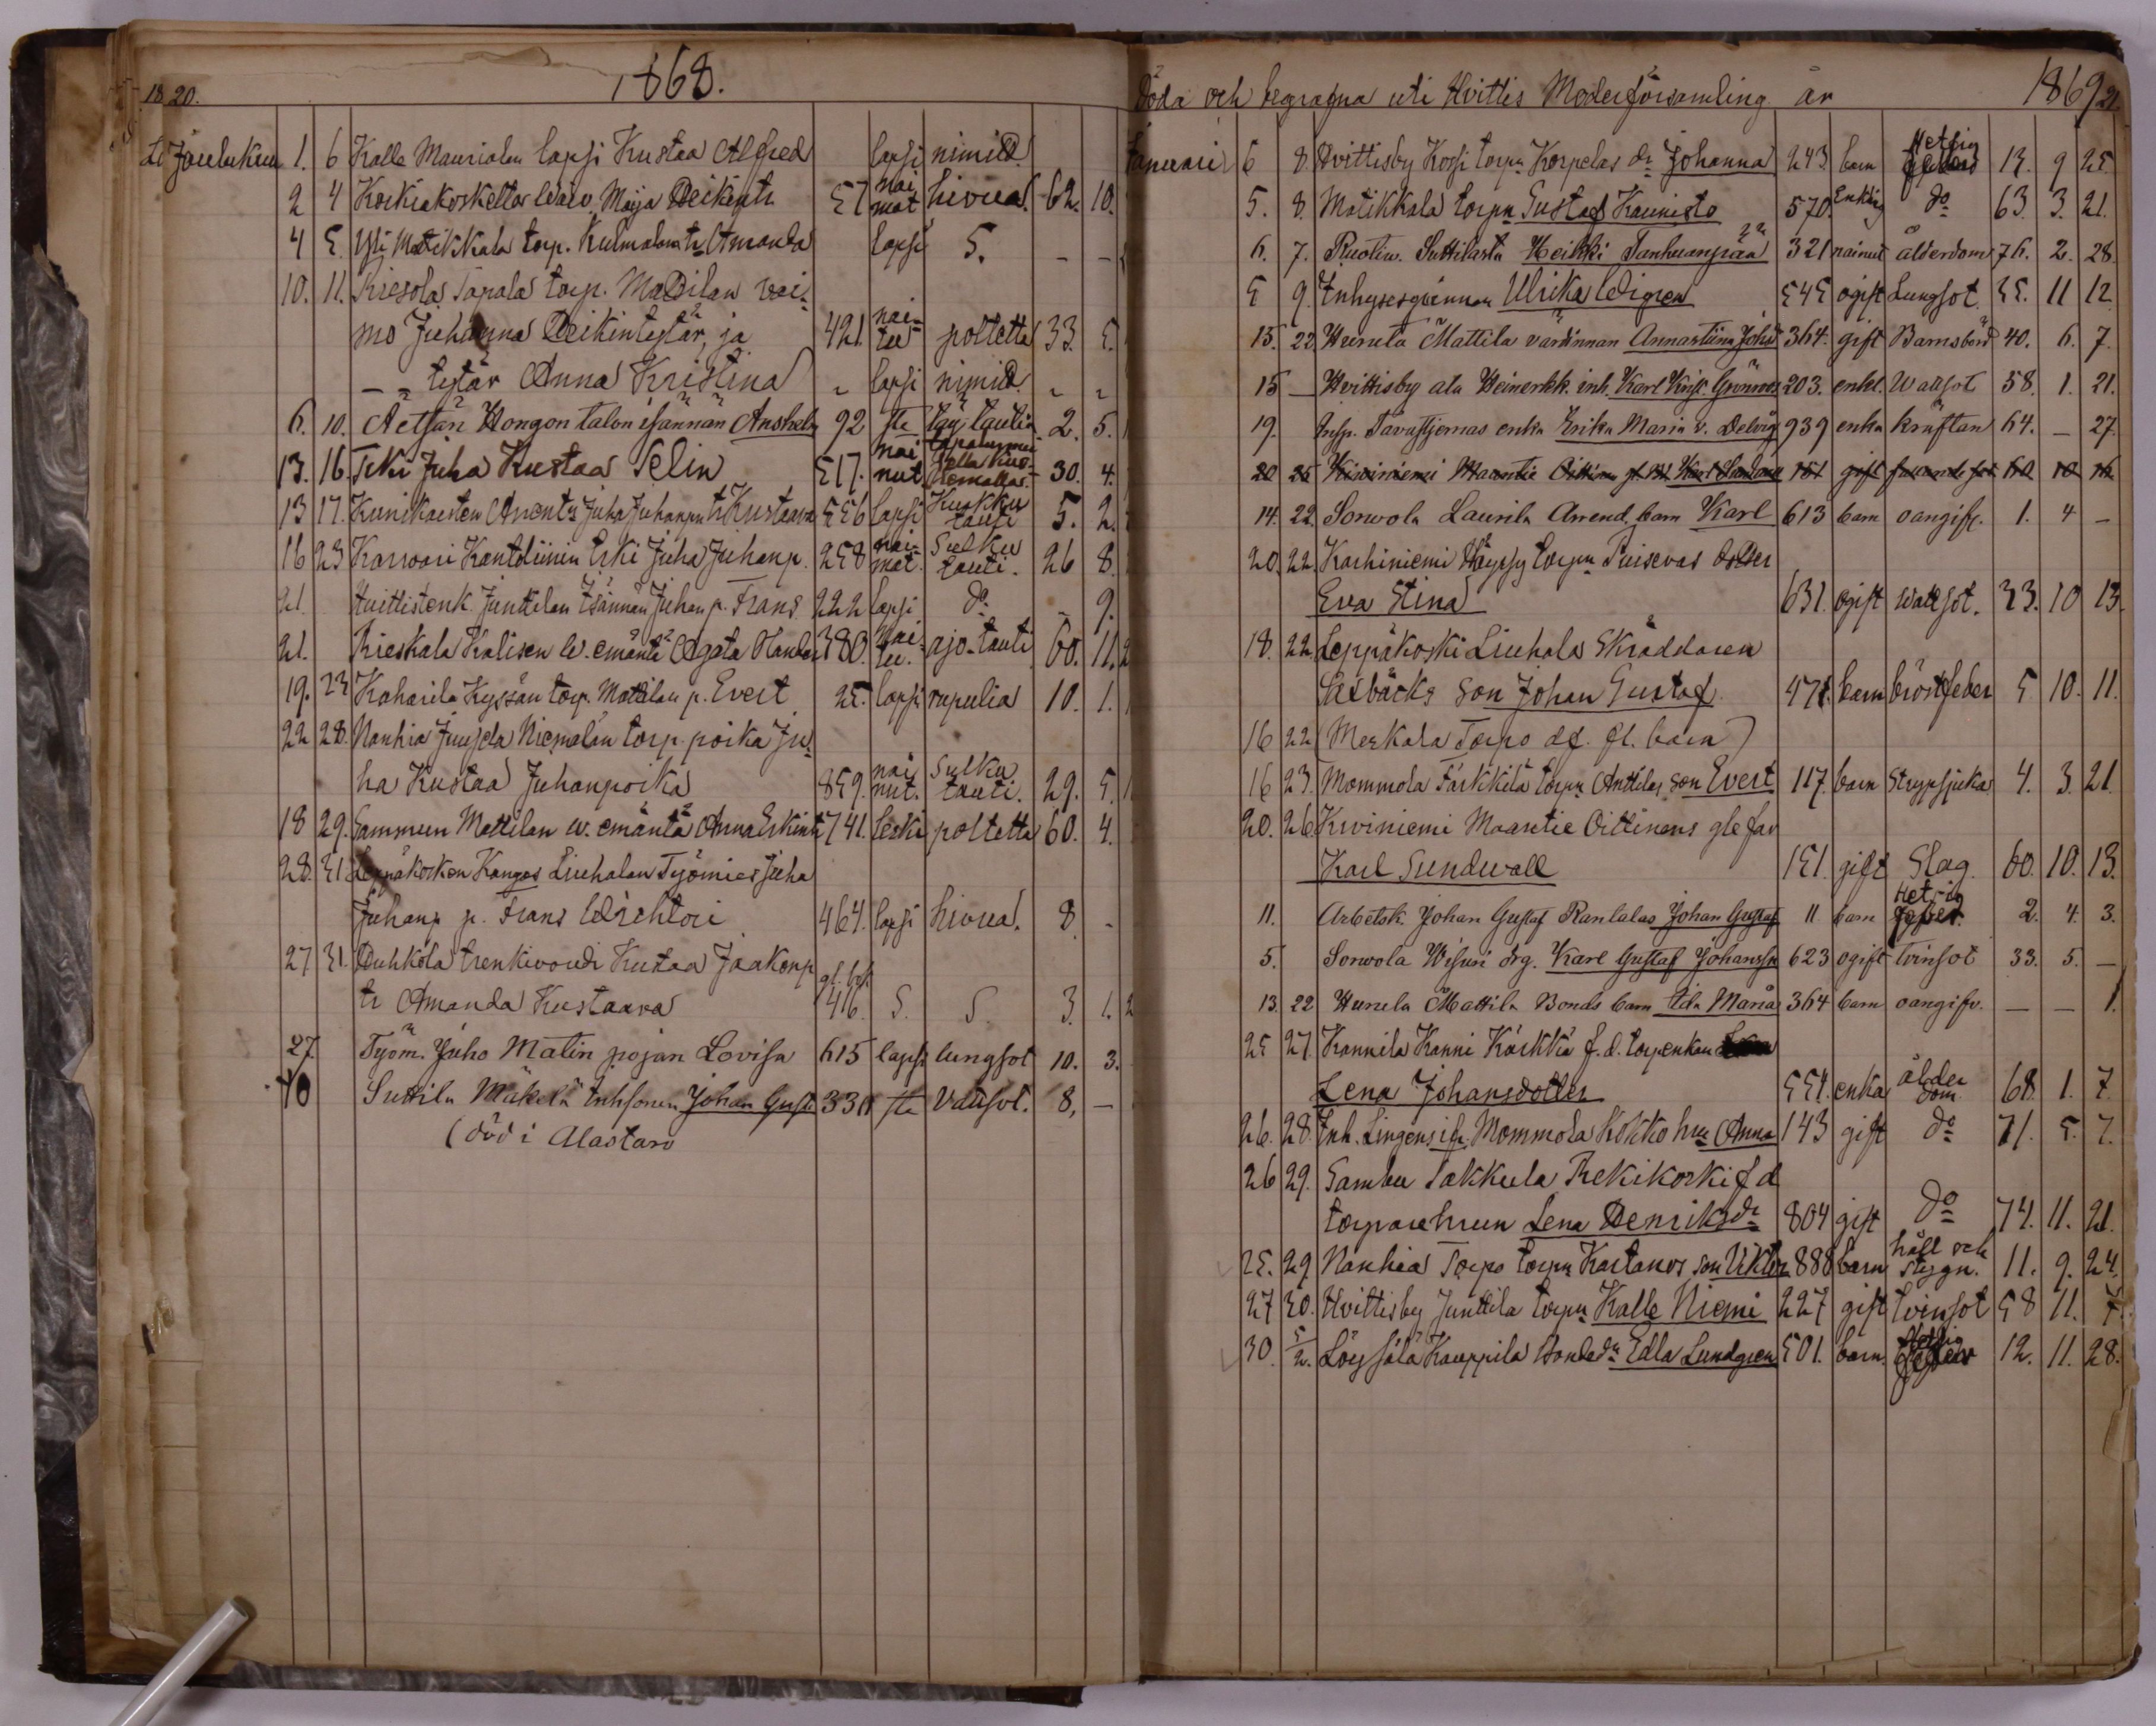 18 20.
1868.
Joulukuu 1. 6 Kalle Maurialan lapsi Kustaa Alfred lapsi nimitt.
2 4 Koskiakoskeltas Waiv. Maija Heikintr 57 nai mat hivua. 62. 10.
4 5. Yli Matikkala torp. Kulmalan tr Amanda lapsi S. - -
10. 11. Riesola Tapala torp. Mattilan vai-
mo Juhanna Heikintytär, ja 421. nai- tu poltetta 33. 5.
- " tytär Anna Kristina " lapsi nimitt. " "
6. 10. Aetsän Hongon talon isännän Anshelm 92 tte täy tautia 2. 5.
13. 16. Teki Juha Kustaa Selin 517. nai nut 30. 4.
13 17. Juha Juhanpn tr Kustaava 556 lapsi Kuskku tausi 5. 2.
16 23 Karwari Kantoliinin Erki Juha Juhanp. 258 nai- mat. Sulku tauti. 26 8.
21. Huittistenk. Junttilan Isännän Juhan p. Frans 222 lapsi do - 9.
21. Rieskala Kalisen w. emäntä Agata 380. Nai- tu. ajo-tauti 60. 11. 2
19. 23 Kaharila Kyssän torp. Mattilan p. Evert 25. lapsi rupulia 10. 1.
22 28. Nanhia Juusela Niemelän torp. poika Ju-
ha Kustaa Juhanpoika 859. nai nut. Sulku tauti. 29. 5.
18 29. Sammun Mattilan w. emäntä Anna Erkintr 741. Leski poltetta 60. 4.
28. 31. Leppäkosken Kangas Liuhalan Työmies Juha
Juhanp p. Frans Wichtori 464. lapsi hivua. 8. -
27 31. Huhkola trenkivoudi Kustaa Jaakonp
tr Amanda Kustaava gl. bok 416. S. S. 3. 1. 2
27. Työm. Juho Matin pojan Lovisa 615 lapsi lungsot 10. 3.
10 Suttila Mäkelä Inhsonen Johan Gust. 330 tte Vattsot. 8, -
(död i Alastaro
Döda och begrafna uti Hvittis Moderförsamling år 1869 21.
Januari 6 8. Hvittisby Kossi torpn Korpelas dr Johanna 243. barn Hetsig feber 14. 9 25.
5. 8. Matikkala torpn Gustaf Kaunisto 570. Enkling do 63. 3. 21.
6. 7. Ruotiw. Suttilasta Heikki Tanhuanpää 321 nainut ålderdom 76. 2. 28.
5 9. Inhysesqvinnan Ulrika Widgren 545 ogift Lungsot. 55. 11 12
15. 22. Hurula Mattila värdinnan Annastiina Johsd 364. gift Barnsbörd 40. 6. 7.
15 — Hvittisby ala Heinerkk. inh. Karl Krist. Grönroos 203. enkl. Wattsot 58. 1. 21.
19. Insp. Tavastjernas enka Erika Maria v. Delvig 939 enka kräftan 64. — 27.
20 25 Kiviniemi Maantie Oittinen gl. Karl Sundvall 151 gift 60 10 16
14. 22. Sorwola Laurila Arrend. barn Karl 613 barn oangifv. 1. 4 —
20. 22. Karhiniemi Häyppy torpn Puisevas dotter
Eva Stina 631. ogift wattsot. 23. 10 13.
18. 22. Leppäkoski Liuhala Skräddaren
Saxbäcks son Johan Gustaf 471. barn bröstfeber 5 10. 11.
16 22 (Meskala Torpo df. fl. barn)
16 23. Mommola Tärkkilä torpn Anttilas son Evert 117. barn Strypsjuka 4. 3. 21.
20. 26. Kiviniemi Maantie Oittinens gle far
Karl Sundwall 151. gift Slag. 60. 10. 13.
11. Arbetsk. Johan Gustaf Rantalas Johan Gustaf 11 barn Hetsig feber. 2. 4. 3.
5. Sorwola Wisuri drg. Karl Gustaf Johanss. 623 ogift tvinsot 33. 5. —
13. 22 Hurula Mattila Bonds barn Ida Maria 364 barn oangifv. — — 1.
25 27. Kannila Kanni Kärkkä f. d. torpenkan
Lena Johansdotter 554. enka ålder dom. 68. 1. 7.
26. 28. Inh. Lingens ifr. Mommola Kokko hru Anna 143 gift do 71. 5. 7.
26 29. Sambu Takkula Rekikoski f d
torparehrun Lena Henriksdr 804 gift do 74. 11. 21.
25. 29. Nanhia Torpo torpn Kastanos son Viktor 888 barn håll och styggn. 11. 9. 24.
27 30. Hvittisby Junttila torpn Kalle Niemi 227 gift tvinsot 58 11. 7.
30. 5/2. Löysälä Kauppila Bondedr Edla Lundgren 501. barn Hetsig feber 12. 11. 28.